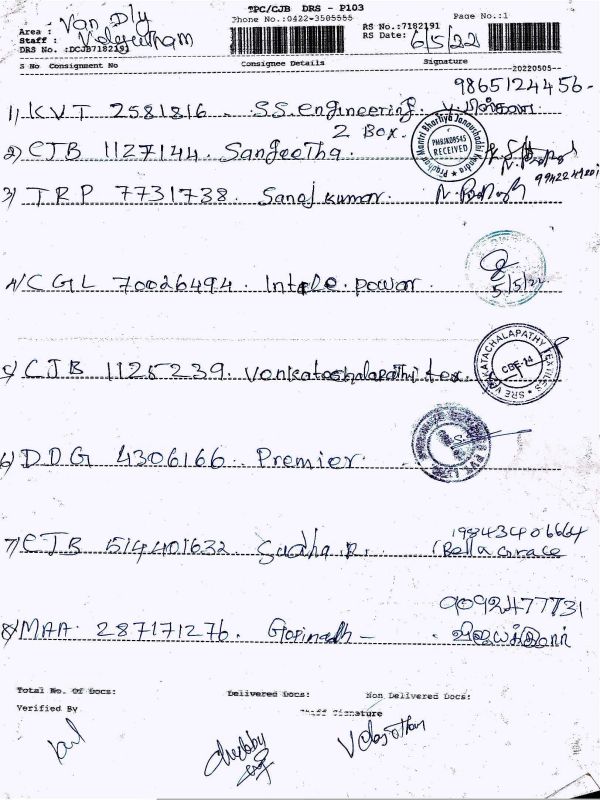 TPC/CJB DRS - P103
Phone No.:0422-3505555
Page No.:1
Area : Van Dly
Staff : Velayutham
DRS No. :DCJB7182191
RS No.:7182191
RS Date: 6/5/22
S No Consignment No Consignee Details Signature
20220505
9865124456-
1) KVT 2581816 - S.S. engineering.
2 Box.
2) CJB 1127144. Sangeetha.
Pradhan Mantri Bhartiya Janaushadhi Kendra
PMBJK09545
RECEIVED
3) TRP 7731738. Sanoj kumar.
4) CGL 70026494. Intele. power.
5/5/22
5) CJB 1125239. Venkateshalapathi tex.
SRE VENKATACHALAPATHY TEXTILES
CBE-14
6) DDG 4306166. Premier.
7) CJB 514401632. Sudha R.
9843406664
8) MAA. 287171276. Gopinadh -
9092477731
Total No. Of Docs: Delivered Docs: Non Delivered Docs:
Verified By Staff Signature